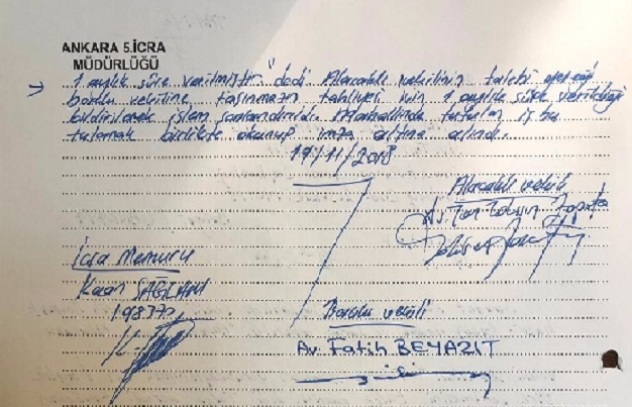 ANKARA 5.İCRA
MÜDÜRLÜĞÜ
1 aylık süre verilmiştir" dedi. Alacaklı vekilinin talebi gereği
borçlu vekiline taşınmazın tahliyesi için 1 aylık süre verildiği
bildirilerek işlem sonlandırıldı. Mahallinde tutulan iş bu
tutanak birlikte okunup imza altına alındı.
19/11/2018
Alacaklı vekili
Av.
İcra Memuru
Kaan SAĞLAM
Borçlu vekili
Av. Fatih BEYAZIT